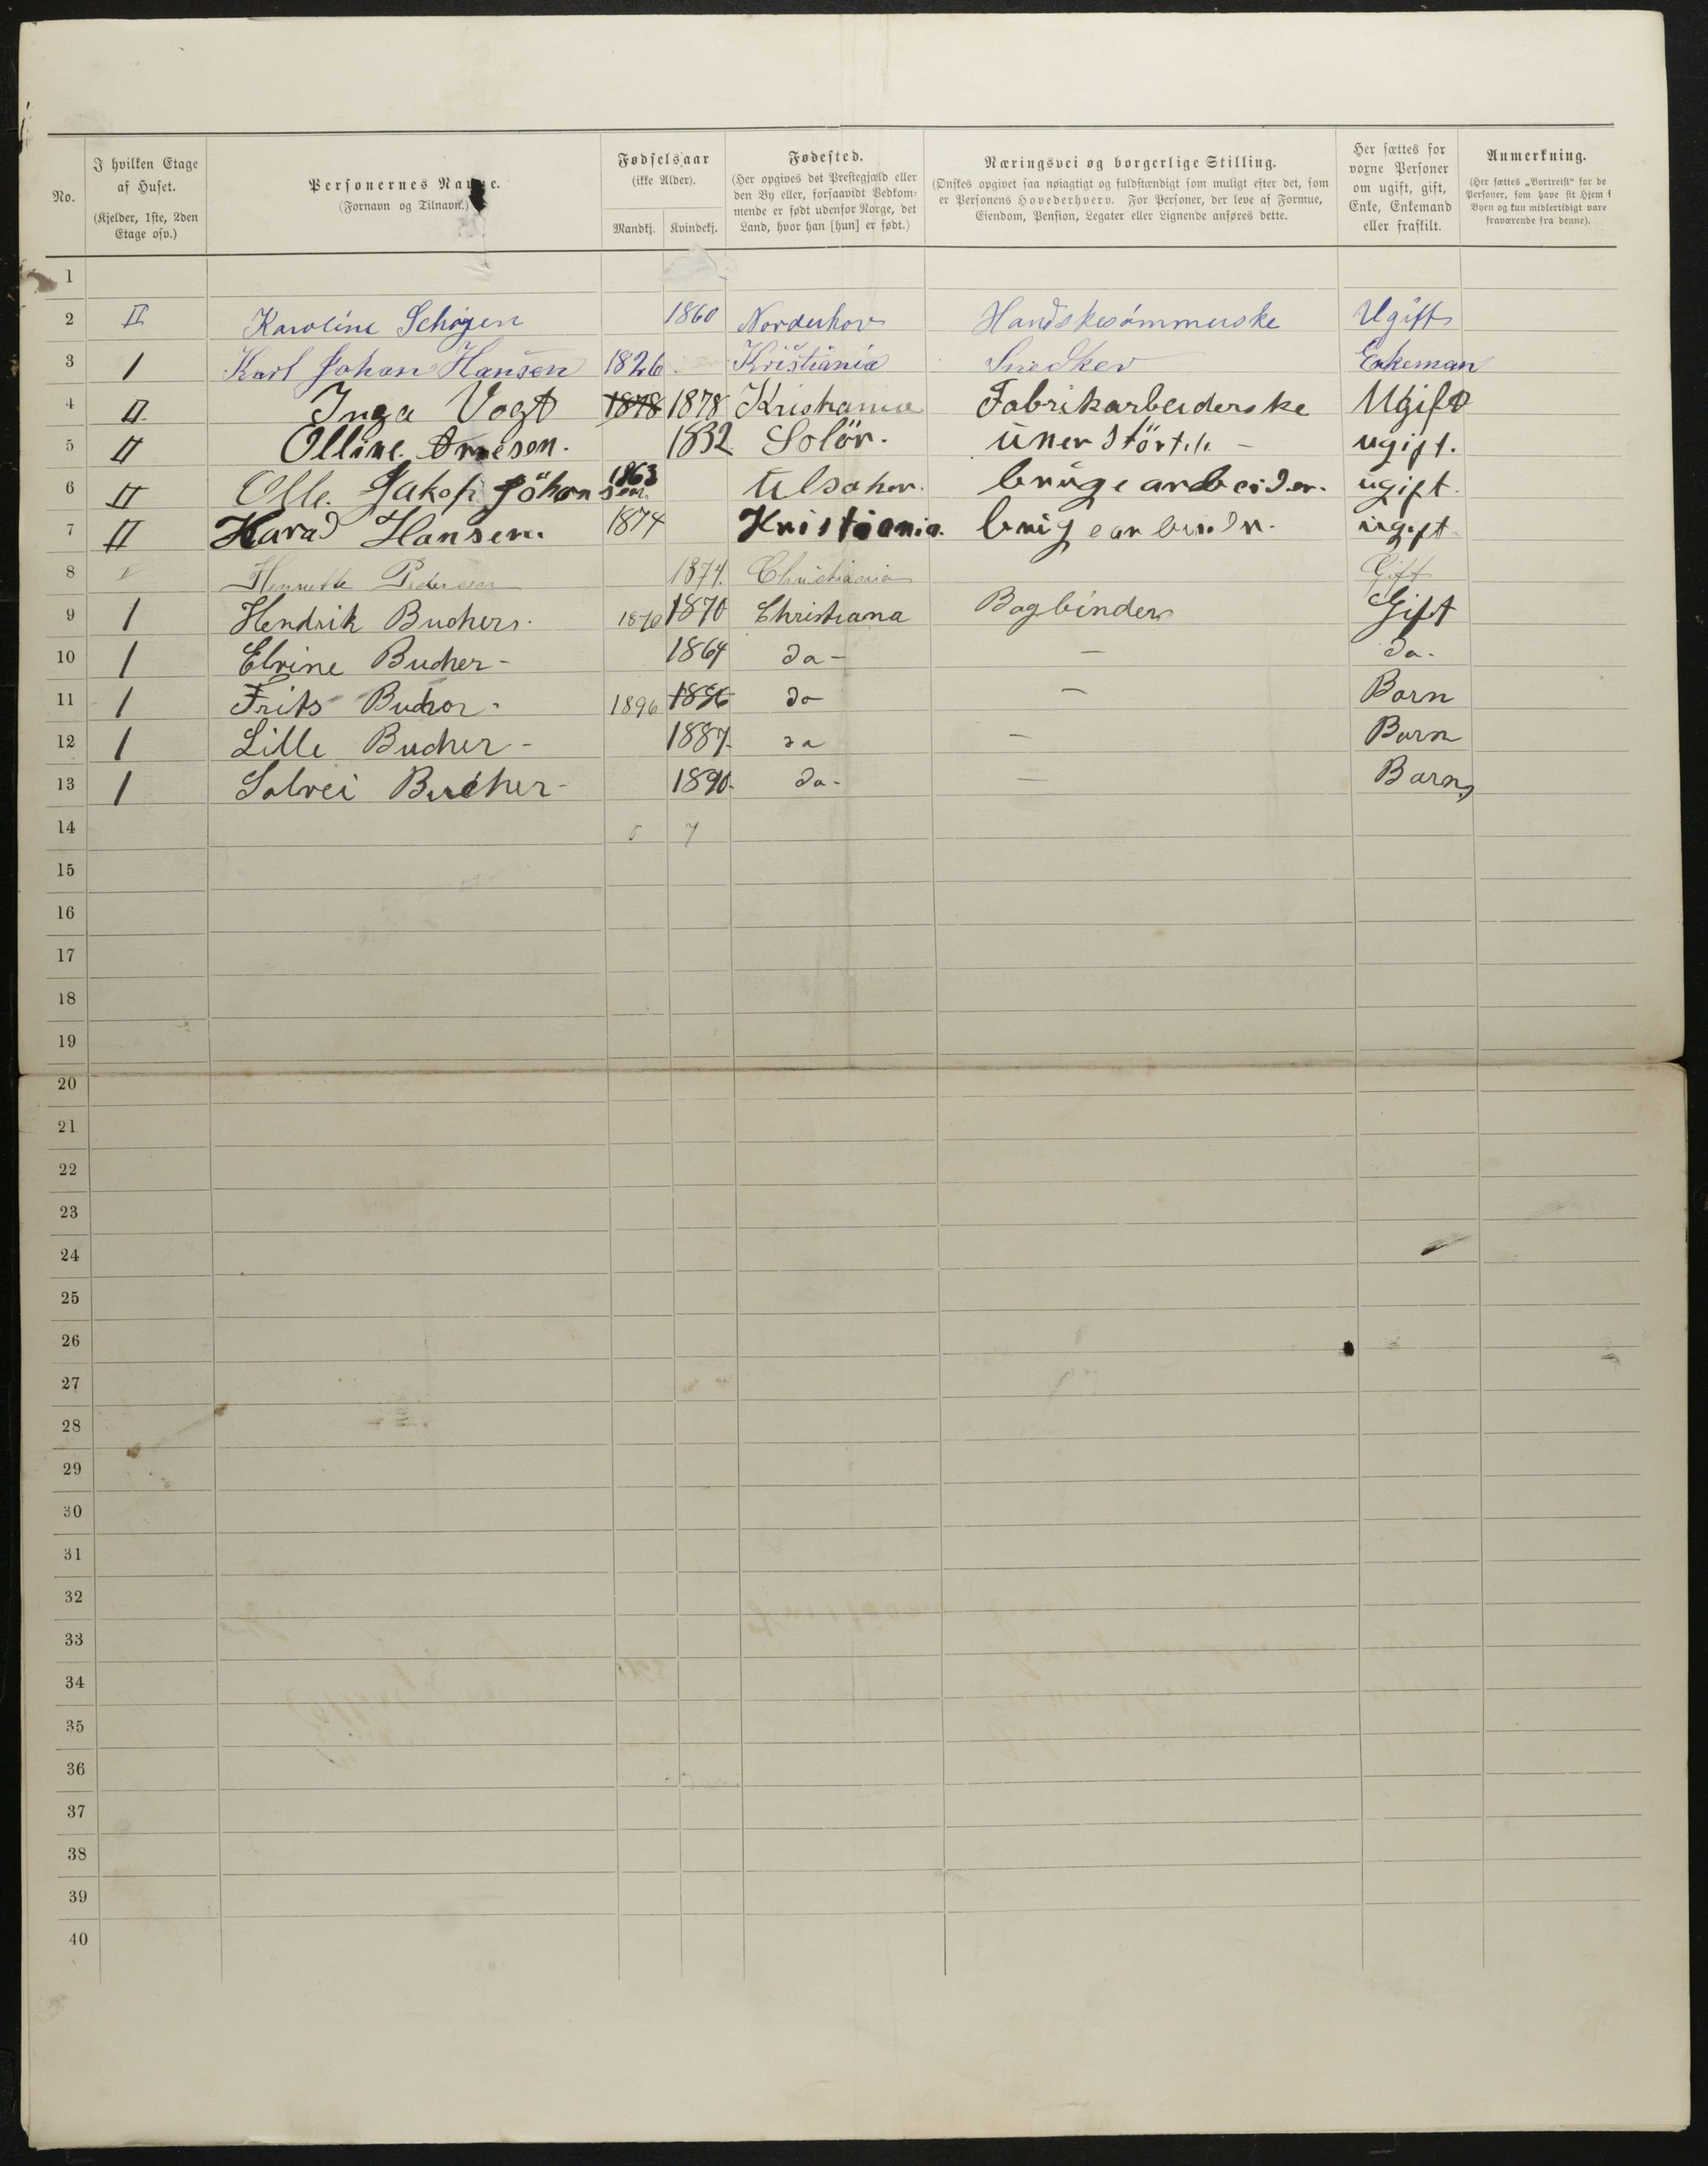 No. I hvilken Etage af Huset. (Kjelder, 1ste, 2den Etage osv.) Personernes Navne. (Fornavn og Tilnavn.) Fødselsaar (ikke Alder). Mandkj. Kvindekj. Fødested. (Her opgives det Prestegjæld eller den By eller, forsaavidt Vedkommende er født udenfor Norge, det Land, hvor han [hun] er født.) Næringsvei og borgerlige Stilling. (Ønskes opgivet saa nøiagtigt og fuldstændigt som muligt efter det, som er Personens Hovederhverv. For Personer, der leve af Formue, Eiendom, Pension, Legater eller Lignende anføres dette. Her sættes for voxne Personer om ugift, gift, Enke, Enkemand eller fraskilt. Anmerkning. (Her sættes „Bortreist" for de Personer, som have sit Hjem i Byen og kun midlertidigt vare fraværende fra denne).
1
2 II Karoline Schøjen 1860 Norderhov Handskesømmerske Ugift
3 1 Karl Johan Hansen 1826 Kristiania Snedker Enkeman
4 II Inga Vogt 1878 1878 Kristiania Fabrikarbeiderske Ugift
5 II Olline Arnesen. 1832 Solör. ugift.
6 II Olle. Jakop Jöhansen. 1863 brugearbeider. ugift.
7 II Harad Hansen. 1874 Kristiania. ugift
8 Henriette Pedersen 1874. Christiania Gift
9 1 Hendrik Buchers. 1870 1870 Christiana Bogbinder Gift
10 1 Elvine Bucher - 1864 da - — da.
11 1 Frits Bucher - 1896 1896 do — Barn
12 1 Lille Bucher - 1887. da — Barn
13 1 Solvei Bucher - 1890. da - — Barn
14 5 7
15
16
17
18
19
20
21
22
23
24
25
26
27
28
29
30
31
32
33
34
35
36
37
38
39
40